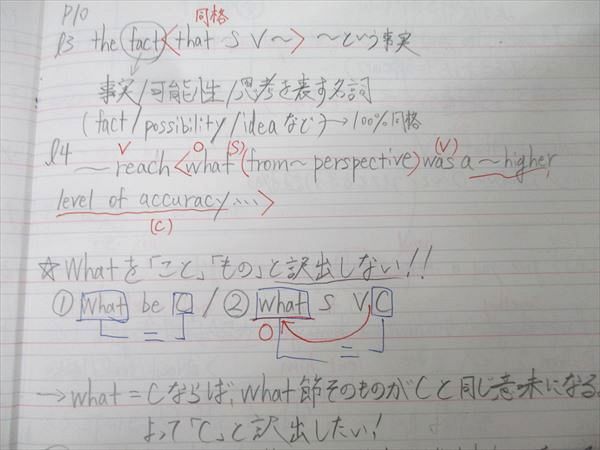 P10
同格
l3 the fact<that S V ～> ～という事実
事実/可能性/思考を表す名詞
(fact/possibility/ideaなど)→100%同格
V O (S) (V)
l4 ～reach<what(from～perspective)was a ～higher
level of accuracy…>
(C)
☆Whatを「こと」、「もの」と訳出しない!!
① What be C / ② what S V C
= O =
→what=Cならば、what節そのものがCと同じ意味になる。
よって「C」と訳出したい!